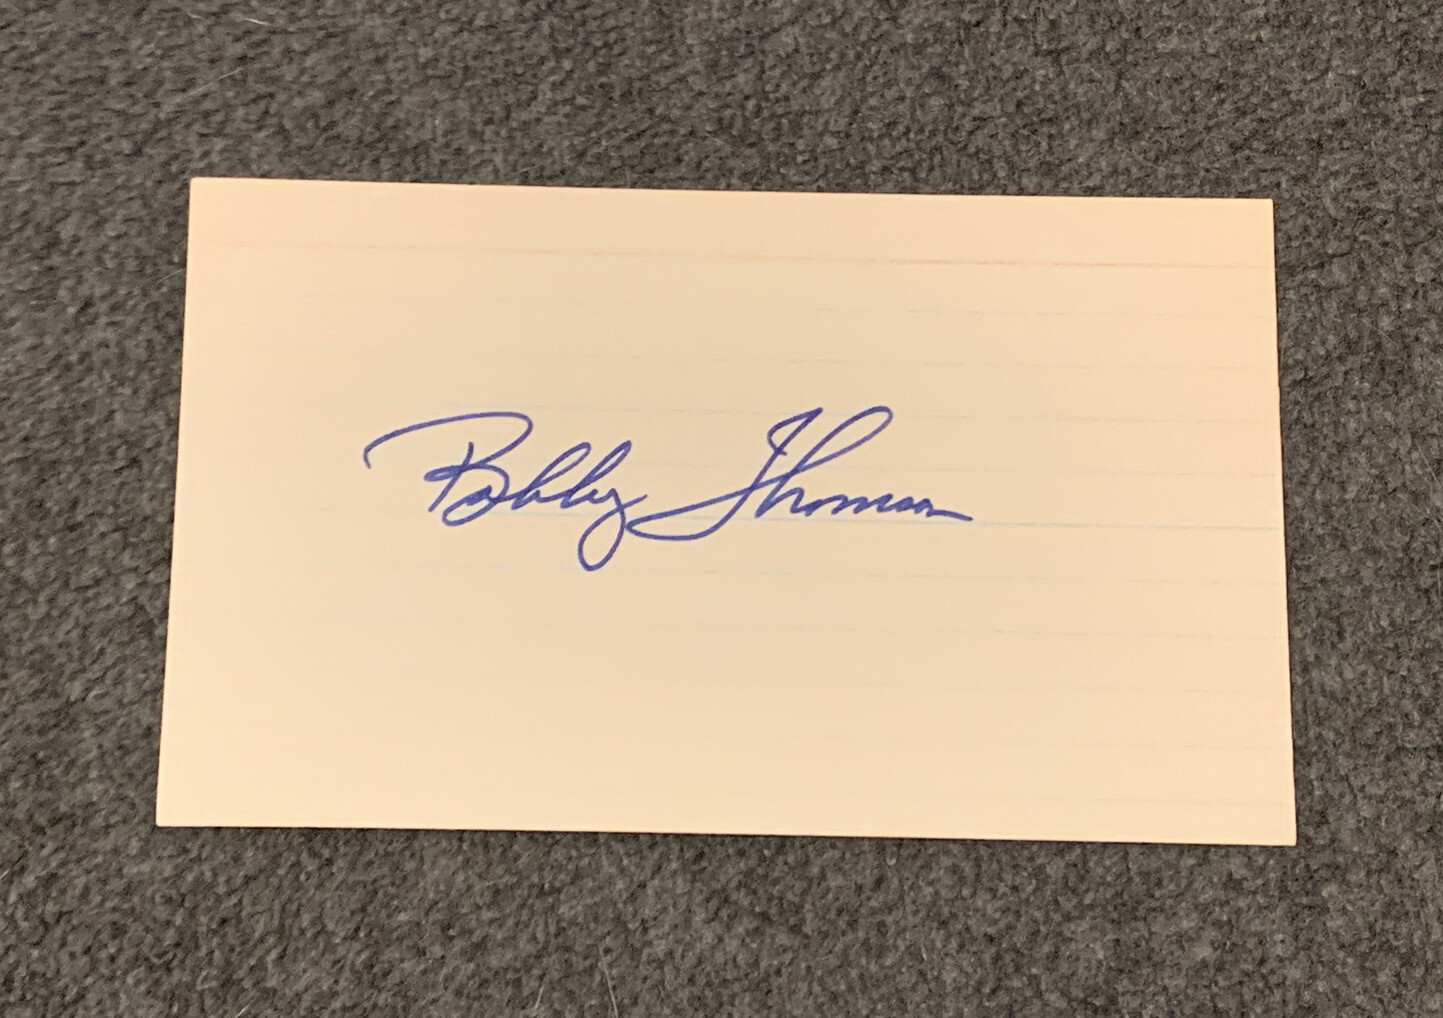 Bobby Thomson